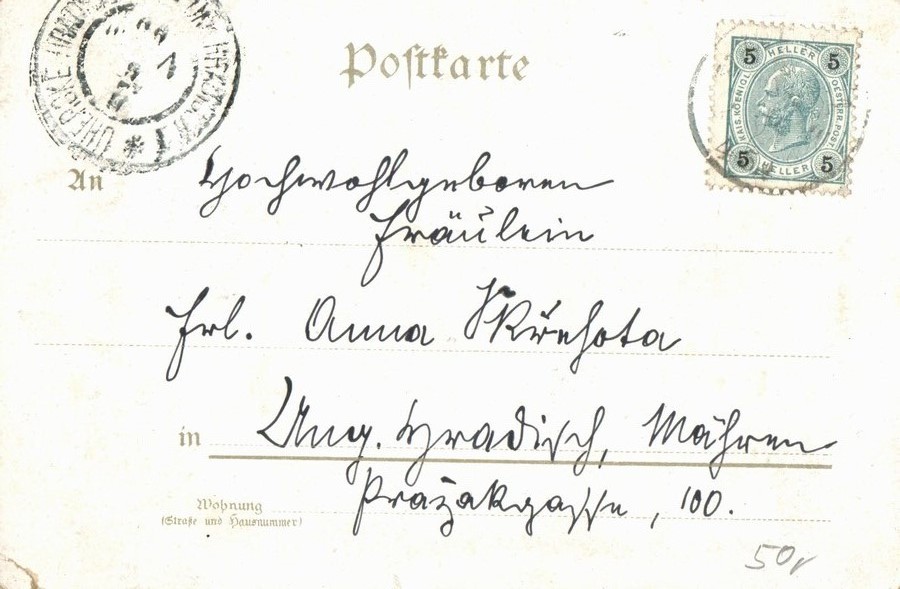 Postkarte
5 HELLER 5
KAIS. KOENIGL.
OESTERR. POST.
5 HELLER 5
An
Hochwohlgeboren
Fräulein
Frl. Anna Skřehota
in
Ung. Hradisch, Mähren
Wohnung
(Straße und Hausnummer)
Pražakgasse, 100.
50,